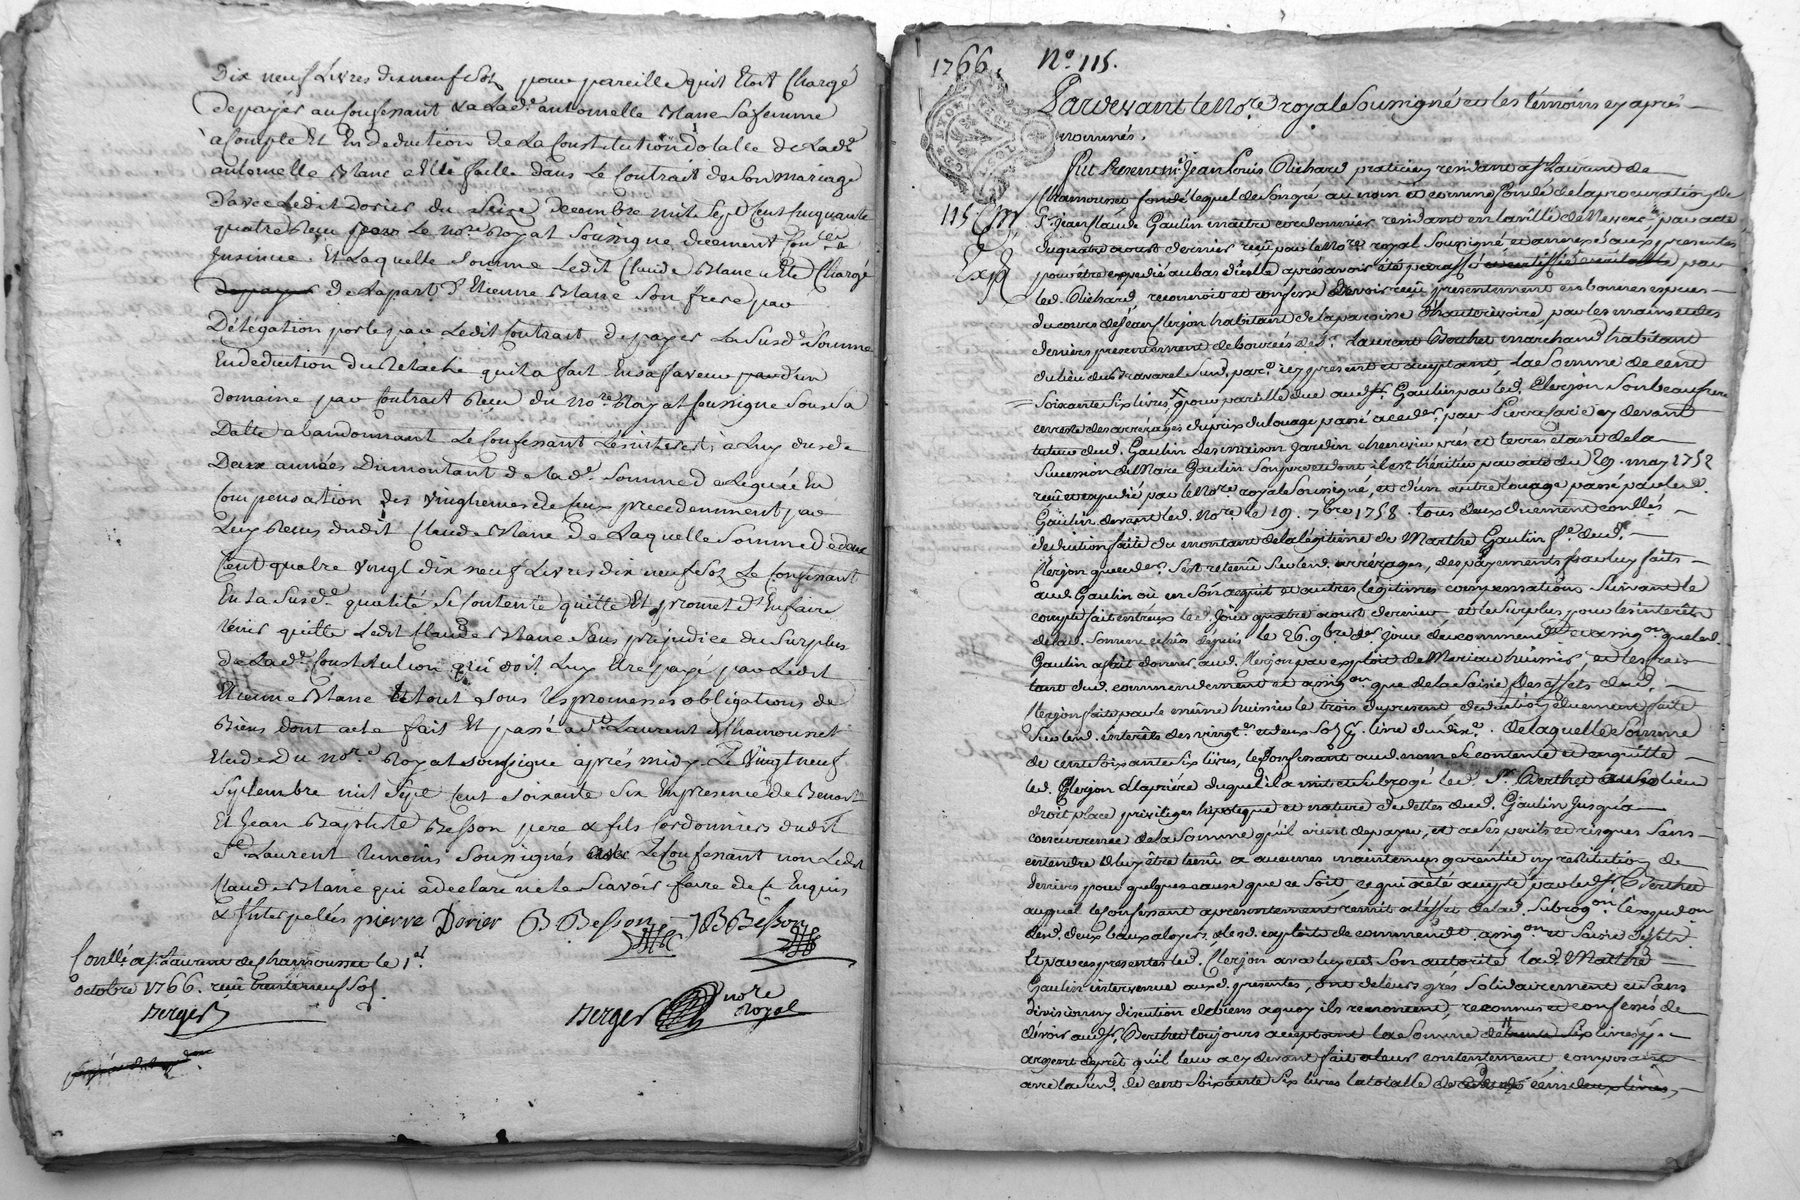 Dix neuf Livres dix neuf Sols pour pareille quil Etoit Chargé
de payer au Confessant & a Lad.e antoinette Blanc Sa femme
à Compte Et En deduction de La Constitution Dotalle de Lad.e
antoinette Blanc a Elle faitte dans Le Contrait de Son mariage
d'avec Ledit Dorier du Seize decembre mil Sept Cent Cinquante
quatre Reçu par Le no.re Royal Soussigne duement
Insinue. Et Laquelle Somme Ledit Claude Blanc a Eté Chargé
de Lapart d'Etienne Blanc Son frere par
Délégation portée par Ledit Contrait de payer La Susd.e Somme
En deduction du Relache quil a fait En Sa faveur d'un
domaine par Contrait Reçu du no.re Royal Soussigne Sous Sa
Datte abandonnant Le Confessant Les interest a Luy dus de
Deux années Du montant de Lad.e Somme deleguée En
Compensation des vingtiemes de ceux precedemment par
Luy Recus dudit Claude Blanc De Laquelle Somme de deux
Cent quatre vingt dix neuf Livres dix neuf Sols Le Confessant
En Sa Susd.e qualité Se Contente quitte Et promet d'En faire
tenir quitte Ledit Claude Blanc Sans prejudice du Surplus
de Lad.e Constitution qui doit Luy Etre payé par Ledit
Etienne Blanc le tout Sous Les promesses obligations de
Biens dont acte fait Et passé a S.t Laurent de Chamousset
Etude Du no.re Royal Soussigne après midy Le Vingt neuf
Septembre mil Sept Cent Soixante Six En presence de Benoit
Et Jean Baptiste Besson pere & fils Cordonniers dudit
S.t Laurent temoins Soussignés avec Le Confessant non Ledit
Claude Blanc qui a declare ne le Scavoir faire de ce Enquis
& Interpellés pierre Dorier B Besson JB Besson
Contlé a St Laurent de Chamousset le 1er
octobre 1766. reçû trente neuf Sols
Berger
Berger no.re Royal
1766. N.o 115.
Pardevant le No.re royal Soussigné et les témoins cy après
nommés.
fut Present m.e Jean Louis Richard praticien residant a St Laurent de
Chamousset fondé lequel de Son gré au nom et comme fondé de la procuration de
S.r Jean Claude Gaulin maître cordonnier residant en la ville de Nevers, par acte
du quatre aoust dernier reçû par le No.re royal Soussigné et annexé aux presentes
pour être expedié au bas d'icelle après avoir été paraffé par
led. Richard reconnoit et confesse avoir reçû presentement en bonnes especes
du cours de Jean Clerjon habitant de la paroisse d'hauterivoire, par les mains et des
deniers presentement deboursés de S.r Laurent Berthet marchand habitant
du lieu du Travare Sud. par.e icy present et acceptant, la Somme de cent
Soixante Six livres, pour pareille due aud. S.r Gaulin par led. Clerjon Son beaufrere
en reste des arrerages du prix du louage passé aced. par Pierre cy devant
tuteur dud. Gaulin des maison Jardin cheneviere près et terres étant de la
Succession de Marc Gaulin Son pere dont il est héritier par acte du 29. may 1752
reçû et expedié par le No.re royal Soussigné, et d'un autre louage passé par led.
Gaulin devant led. No.re le 19. 7bre 1758. tous deux duement conllés,
deduction faite du montant de la légitime de Marthe Gaulin f.e dud.
Clerjon que ced. S'est retenû Sur lesd. arrérages, des payements par luy faits
aud. Gaulin ou en Son acquit et autres légitimes compensations Suivant le
compte fait entreux led. Jour quatre aoust dernier et le Surplus pour les intérêts
de lad. Somme echus depuis le 26. 9bre der. Jour du commend.t et assig.on que led.
Gaulin a fait donner aud. Clerjon par exploit de Moriau huissier, et les frais
tant dud. commendement et assig.on que de la Saisie des effets dud.
Clerjon faite par le même huissier le trois du present deduction duement faite
Sur lesd. intérêts des vingt.es et deux Sols p. livre du dix.e. De laquelle Somme
de cent Soixante Six livres, le Confessant aud. nom Se contente et en quitte
led. Clerjon à la priére duquel il a mis et Subrogé led. S.r Berthet au lieu
droit place privileges hipotéque et nature de dettes dud. Gaulin Jusqu'à
concurrence de la Somme qu'il vient de payer, et à Ses perils et risques Sans
entendre de luy être tenû a aucunes maintenues garentie ny restitution de
deniers pour quelque cause que ce Soit, ce qui a été accepté par led. S.r Berthet
auquel le Confessant a presentement remis a l'effet de lad. Subrog.on l'expedi.on
desd. deux baux a loyer, et les d. exploits de commend.t assig.on et Saisie d'effets.
Et par ces presentes led. Clerjon et a luy et de Son autorité lad. Marthe
Gaulin intervenue aux d. presentes, ont de leurs grés Solidairement et Sans
division ny discution de biens a quoy ils renoncent, reconnus et confessés de
devoir aud. S.r Berthet toujours acceptant la Somme de trente Six livres
argent de prêt qu'il leur a cy devant fait a leur contentement composant
avec la Susd. de cent Soixante Six livres la totalle de deux cens deux livres,
115
Exp